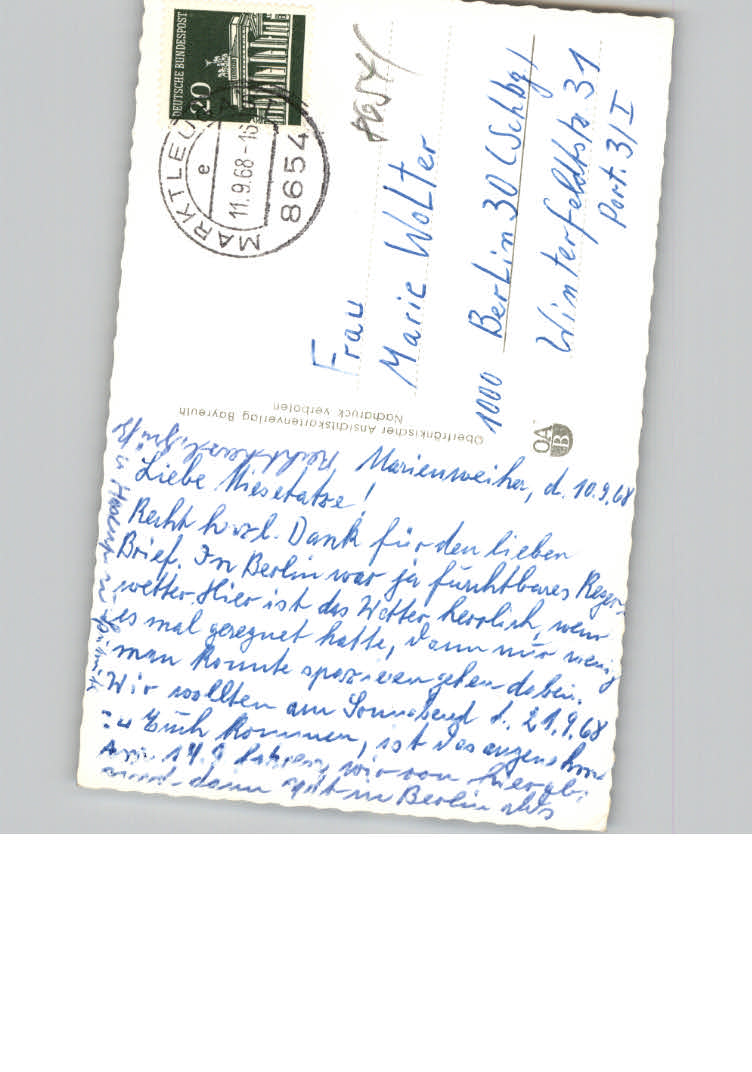 DEUTSCHE BUNDESPOST
20
MARKTLEU
e
11.9.68-16
8654
Frau
Marie Wolter
1000 Berlin 30 (Schbg)
Winterfeldtstr. 31
Port. 3/I
Oberfränkischer Ansichtskartenverlag Bayreuth
Nachdruck verboten
OA
B
Marienweiher, d. 10.9.68
Liebe Miesetatze!
Recht herzl. Dank für den lieben
Brief. In Berlin war ja furchtbares Regen-
wetter. Hier ist das Wetter herrlich, wenn
es mal geregnet hatte, dann nur wenig
man konnte spazierengehen dabei.
Wir wollten am Sonnabend d. 21.9.68
zu Euch kommen, ist das angenehm
Am 14.9 fahren wir von hier ab,
und dann in Berlin alles